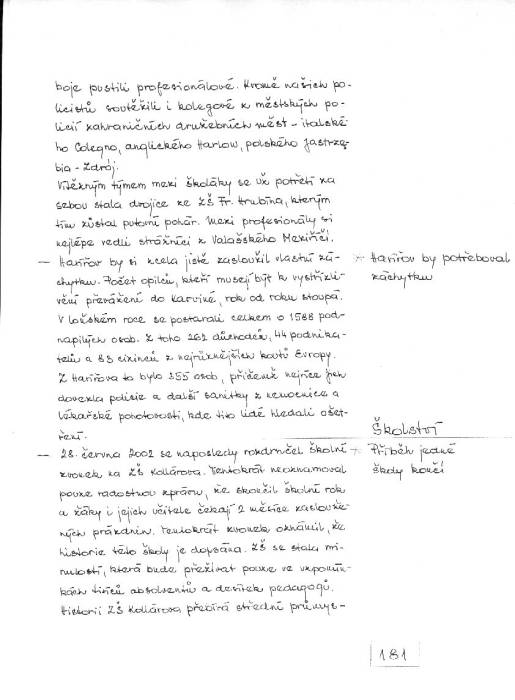 boje pustili profesionálové. Kromě našich po-
licistů soutěžili i kolegové z městských po-
licií zahraničních družebních měst - italské-
ho Colegno, anglického Harlow, polského Jastrzę-
bia - Zdrój.
Vítězným týmem mezi školáky se už potřetí za
sebou stala dvojice ze ZŠ Fr. Hrubína, kterým
tím zůstal putovní pohár. Mezi profesionály si
nejlépe vedli strážníci z Valašského Meziříčí.
— Havířov by si zcela jistě zasloužil vlastní zá-
chytku. Počet opilců, kteří musejí být k vystřízli-
vění převáženi do Karviné, rok od roku stoupá.
V loňském roce se postarali celkem o 1588 pod-
napilých osob. Z toho 262 důchodců, 44 podnika-
telů a 83 cizinců z nejrůznějších koutů Evropy.
Z Havířova to bylo 355 osob, přičemž nejvíce jich
dovezla policie a další sanitky z nemocnice a
lékařské pohotovosti, kde tito lidé hledali ošet-
ření.
— 28. června 2002 se naposledy rozdrnčel školní
zvonek na ZŠ Kollárova. Tentokrát neoznamoval
pouze radostnou zprávu, že skončil školní rok
a žáky i jejich učitele čekají 2 měsíce zaslouže-
ných prázdnin. Tentokrát zvonek oznámil, že
historie této školy je dopsána. ZŠ se stala mi-
nulostí, která bude přežívat pouze ve vzpomín-
kách tisíců absolventů a desítek pedagogů.
Historii ZŠ Kollárova přebírá střední průmys-
Havířov by potřeboval
záchytku
Školství
Příběh jedné
školy končí
181